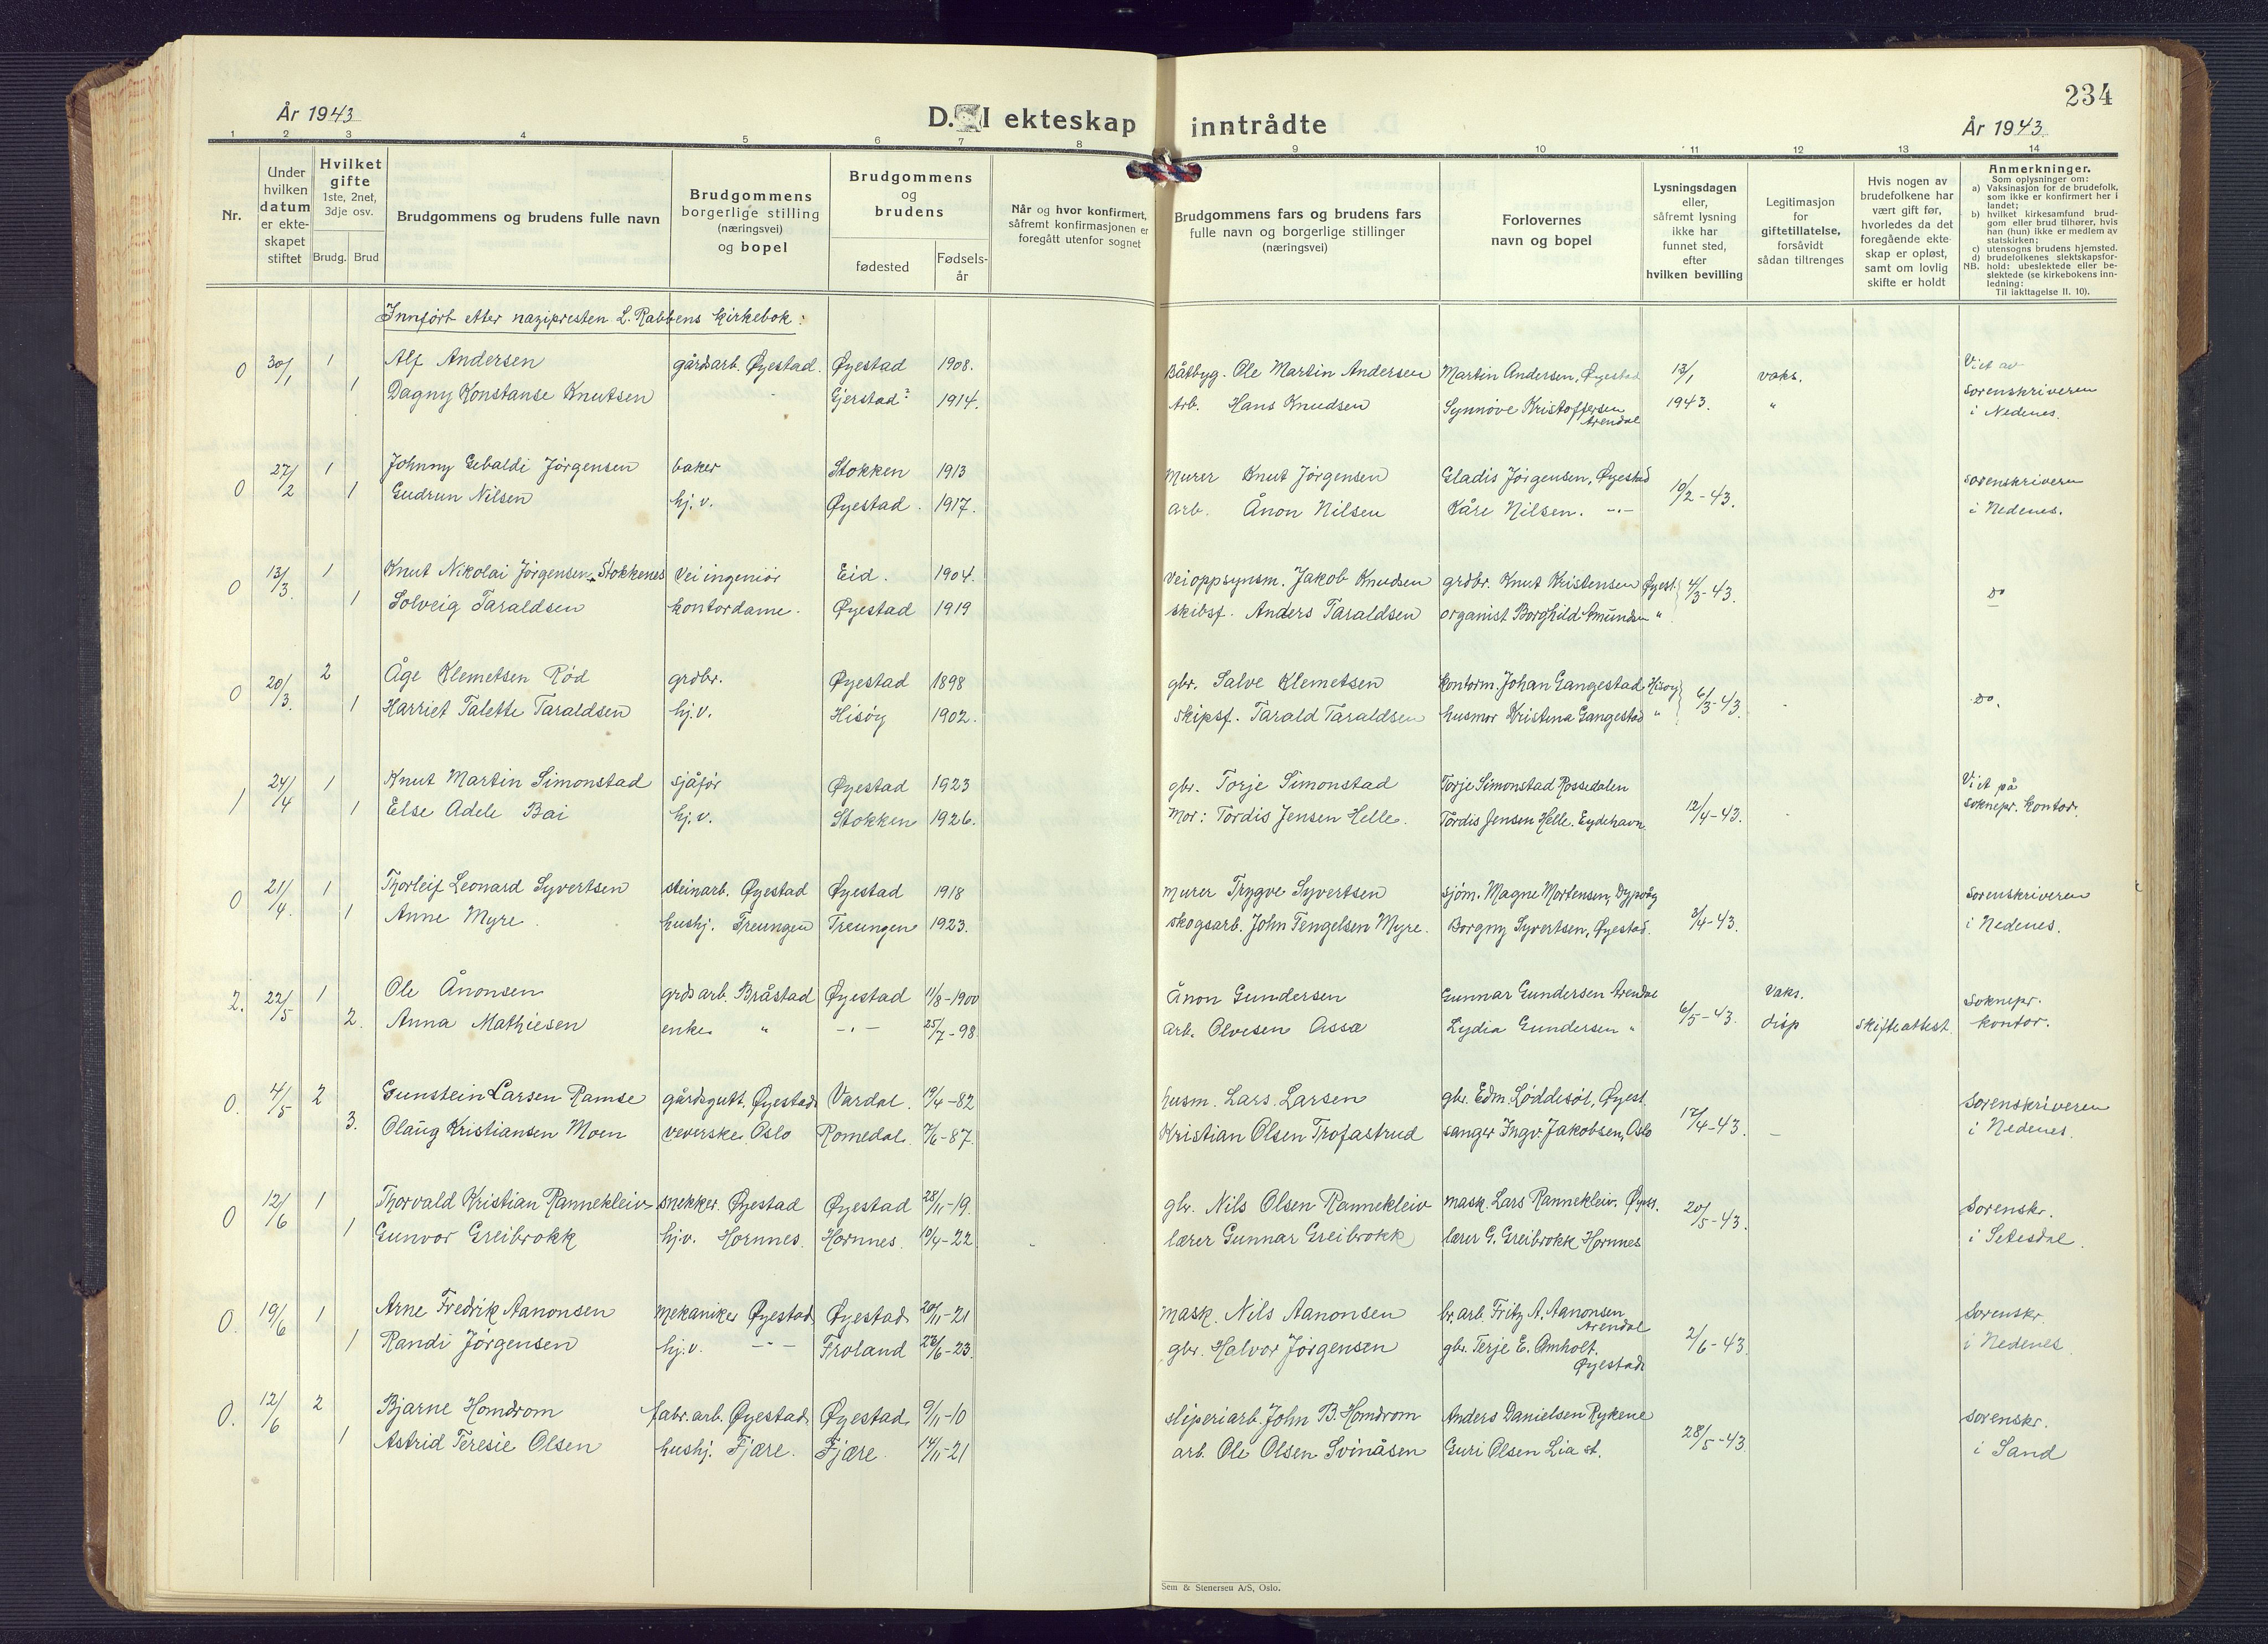 234
År 1943
D. I ekteskap inntrådte
År 1943.
1 2 3 4 5 6 7 8 9 10 11 12 13 14
Nr.
Under hvilken datum er ekteskapet stiftet
Hvilket gifte 1ste, 2net, 3dje osv.
Brudg. Brud
Brudgommens og brudens fulle navn
Brudgommens borgerlige stilling (næringsvei) og bopel
Brudgommens og brudens
fødested
Fødselsår
Når og hvor konfirmert, såfremt konfirmasjonen er foregått utenfor sognet
Brudgommens fars og brudens fars fulle navn og borgerlige stillinger (næringsvei)
Forlovernes navn og bopel
Lysningsdagen eller, såfremt lysning ikke har funnet sted, efter hvilken bevilling
Legitimasjon for giftetillatelse, forsåvidt sådan tiltrenges
Hvis nogen av brudefolkene har vært gift før, hvorledes da det foregående ekteskap er opløst, samt om lovlig skifte er holdt
Anmerkninger.
Som oplysninger om:
a) Vaksinasjon for de brudefolk, som ikke er konfirmert her i landet;
b) hvilket kirkesamfund brudgom eller brud tilhører, hvis han (hun) ikke er medlem av statskirken;
c) utensogns brudens hjemsted.
d) brudefolkenes slektskapsforhold: ubeslektede eller beslektede (se kirkebokens innledning:
NB.
Til iakttagelse II. 10).
Innført etter nazipresten L. Rabbens kirkebok:
0 30/1 1 Alf Andersen gårdsarb. Øyestad. Øyestad 1908. Båtbyg. Ole Martin Andersen Martin Andersen, Øyestad 13/1 vaks. Viet av
1 Dagny Konstanse Knutsen Gjerstad? 1914. Arb. Hans Knudsen Synnøve Kristoffersen Arendal 1943. " Sorenskriveren i Nedenes.
0 27/2 1 Johnny Gebaldi Jørgensen baker Stokken 1913 Murer Knut Jørgensen Gladis Jørgensen, Øyestad 10/2-43. sorenskriveren
1 Gudrun Nilsen hj.v. Øyestad. 1917. arb. Ånon Nilsen Kåre Nilsen. -"- i Nedenes.
0 13/3. 1 Knut Nikolai Jørgensen Stokkenes Veiingeniør Eid. 1904. Veioppsynsm. Jakob Knudsen grdbr. Knut Kristensen Øyest. 4/3-43. do
1 Solveig Taraldsen kontordame. Øyestad 1919 skibsf. Anders Taraldsen organist Borghild Amundsen "
0 20/3. 2 Åge Klemetsen Rød grdbr. Øyestad 1898 gbr. Salve Klemetsen Kontorm. Johan Gangestad Hisøy 6/3-43. do.
1 Harriet Talette Taraldsen hj.v. Hisøy 1902. Skipsf. Tarald Taraldsen husmor Kristina Gangestad "
1 24/4 1 Knut Martin Simonstad sjåfør Øyestad 1923 gbr. Torje Simonstad Torje Simonstad Rossedalen 12/4-43. Viet på
1 Else Adele Bai hj.v. Stokken 1926. Mor: Tordis Jensen Helle. Tordis Jensen Helle. Eydehavn. soknepr. kontor.
0 21/4. 1 Thorleif Leonard Syvertsen steinarb. Øyestad Øyestad 1918 murer Trygve Syvertsen sjøm. Magne Mortensen, Dypvåg 3/4-43. Sorenskriveren
1 Anne Myre. hushj. Treungen Treungen 1923. skogsarb. John Tengelsen Myre. Borgny Syvertsen, Øyestad. i Nedenes.
2. 22/5 1 Ole Ånonsen grdsarb. Bråstad Øyestad 11/8-1900 Ånon Gundersen Gunnar Gundersen Arendal 6/5-43. Vaks. Soknepr.
2. Anna Mathiesen enke " -"- 25/7-98 arb. Olvesen Assa Lydia Gundersen " disp Skifteattest. kontor.
0. 4/5 2 Gunstein Larsen Ramse gårdsgutt. Øyestad Vardal. 19/4-82 husm. Lars Larsen gbr. Edm. Løddesøl, Øyest. 17/4-43. Sorenskriveren
3. Olaug Kristiansen Moen veverske. Oslo Romedal. 7/6-87. Kristian Olsen Trofastrud sanger Ingv. Jakobsen, Oslo - i Nedenes.
0 12/6 1 Thorvald Kristian Rannekleiv snekker. Øyestad Øyestad 28/11-19. gbr. Nils Olsen Rannekleiv mask. Lars Rannekleiv. Øyest. 20/5-43. Sorenskr.
1 Gunvor Greibrokk hj.v. Hornnes. Hornnes. 10/4-22 lærer Gunnar Greibrokk lærer G. Greibrokk Hornnes i Setesdal.
0. 19/6 1 Arne Fredrik Aanonsen mekaniker Øyestad Øyestad 20/11-21 mask. Nils Aanonsen br.arb. Fritz A. Aanonsen Arendal 2/6-43. Sorenskr.
1 Randi Jørgensen hj.v. -"- Froland 23/6-23. gbr. Halvor Jørgensen gbr. Terje E. Omholt. Øyestad i Nedenes
0. 12/6 2 Bjarne Homdrom fabr.arb. Øyestad. Øyestad. 9/11-10 sliperiarb. John B. Homdrom Anders Danielsen Rykene 28/5-43 sorenskr.
1 Astrid Teresie Olsen hushj. Fjære. Fjære. 14/11-21 arb. Ole Olsen Svinåsen Guri Olsen Lia st. i Sand
Sem & Stenersen A/S, Oslo.